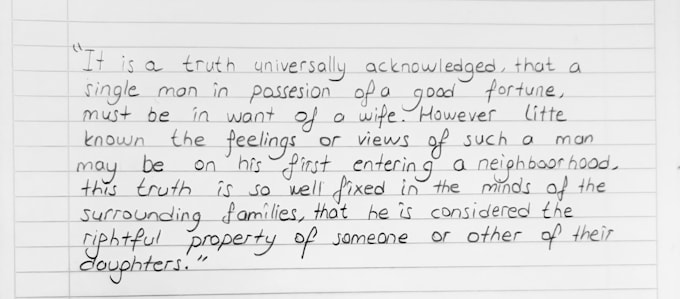 "It is a truth universally acknowledged, that a
single man in possesion of a good fortune,
must be in want of a wife. However litte
known the feelings or views of such a man
may be on his first entering a neighboorhood,
this truth is so well fixed in the minds of the
surrounding families, that he is considered the
riphtful property of someone or other of their
daughters."